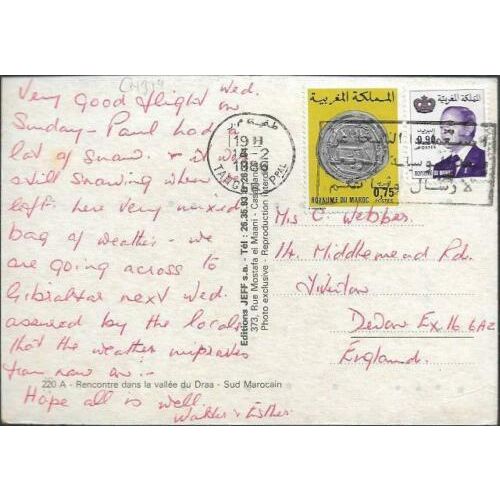 Very good flight Wed.
on
Sunday - Paul had a
lot of Snow. & it was
still snowing when
left here very mixed
bag of weather, we
are going across to
Gibraltar next Wed.
assured by the locals
that the weather improves
from now on.
Hope all is well.
Walter & Esther
220 A - Rencontre dans la vallée du Draa - Sud Marocain
Editions JEFF s.a. - Tél : 26.35.93
373, Rue Mostafa el Maani - Casablanca
Photo exclusive - Reproduction interdite
طنجة
19 H
4-2
1986
TANGER PPAL
المملكة المغربية
0,75
ROYAUME DU MAROC POSTES
المملكة المغربية
البريد
0,90
Mrs C. Webber
14. Middlemead Rd.
Tiverton
Devon Ex.16.6AZ
England.